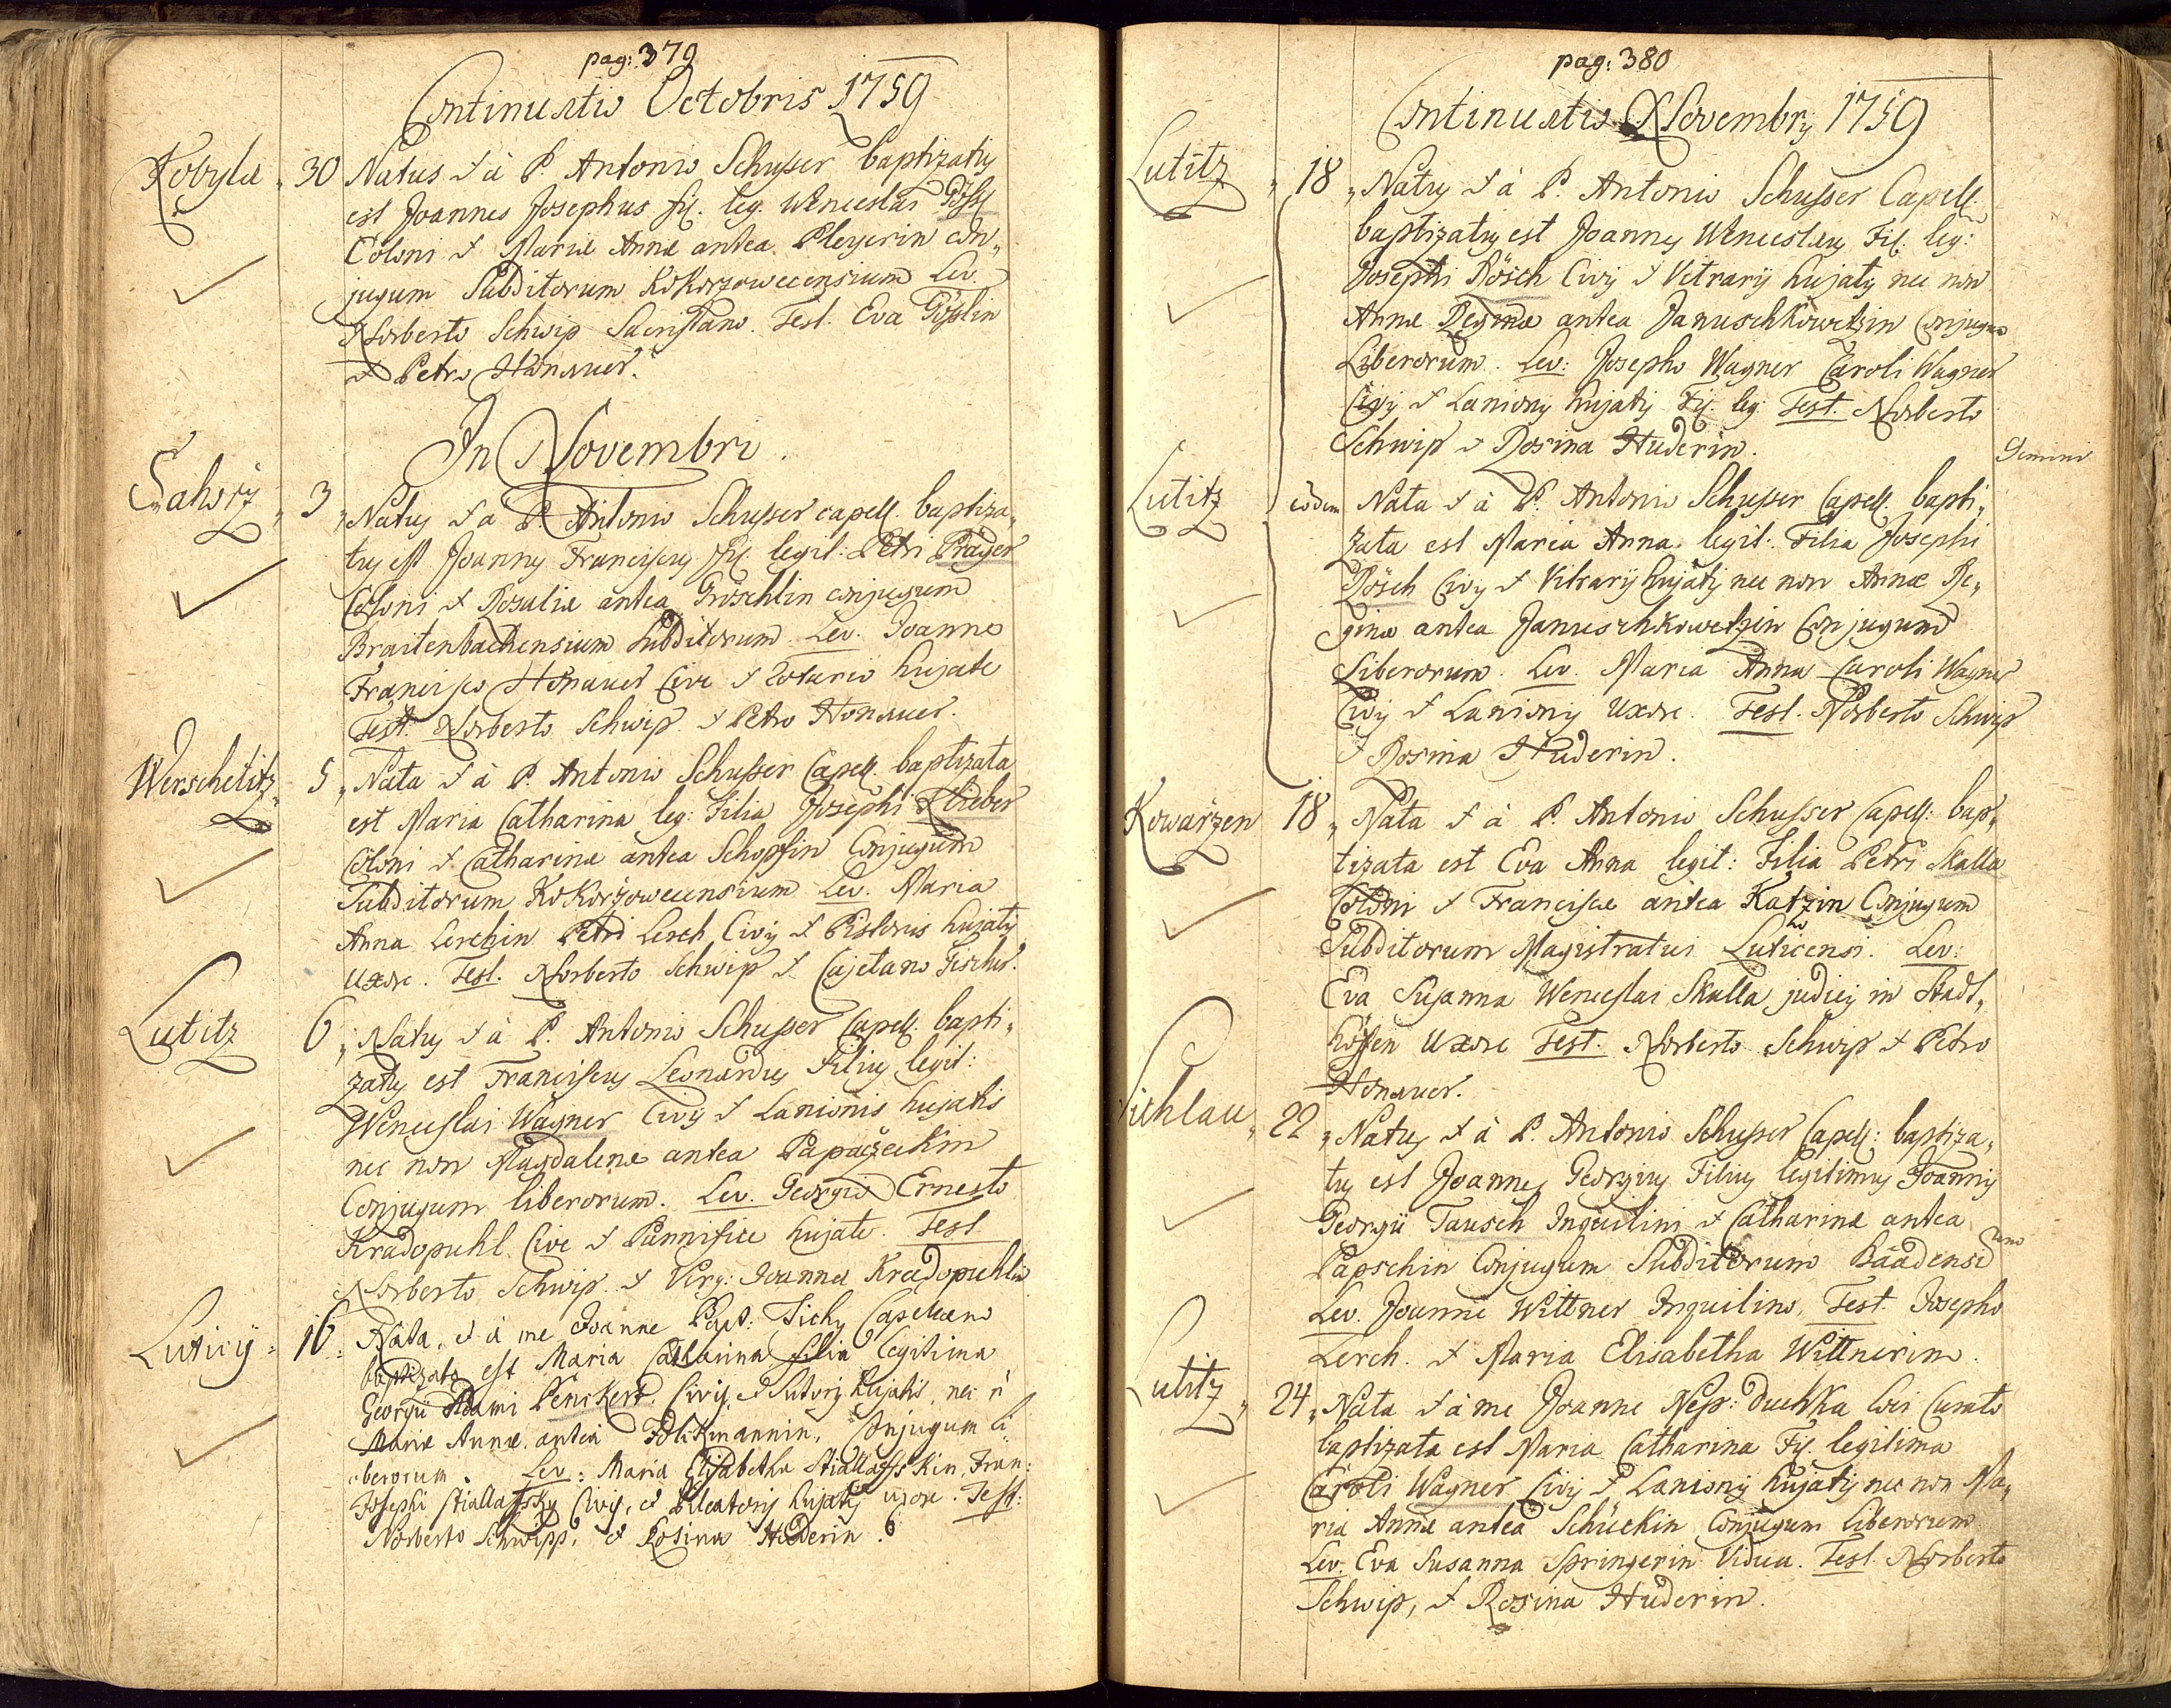 pag: 379
Continuatio Octobris 1759
Kobyla 30 Natus & à P. Antonio Schusser baptizatus
est Joannes Josephus fil. leg. Wenceslai Gössl
Coloni & Mariæ Annæ antea Pleyerin con„
jugum Subditorum Kokorzowecensium Lev.
Norberto Schwip Sacristano. Test. Eva Gösslin
& Petro Honauer.
In Novembri.
Sahorz 3 „Natus & a P. Antonio Schusser capell. baptiza„
tus est Joannes Franciscus fil. legit: Petri Prayer
Coloni & Rosaliæ antea Gröschlin conjugum
Braitenbachensium Subditorum. Lev. Joanne
Francisco Honauer Cive & Rotario hujate
Test. Norberto Schwip & Petro Honauer.
Werschetitz 5 „Nata & à P. Antonio Schusser Capell. baptizata
est Maria Catharina leg: Filia Josephi
Coloni & Catharinæ antea Schopfin Conjugum
Subditorum Kokoržowecensium Lev. Maria
Anna Lerchin Petri Lerch Civis & Pistoris hujatis
Uxore. Test. Norberto Schwip & Cajetano Fischer.
Lutitz 6 „Natus & à P. Antonio Schusser Capell. bapti„
zatus est Franciscus Leonardus Filius legit:
Wenceslai Wagner Civis & Lanionis hujatis
nec non Magdalenæ antea Papaczekin
Conjugum liberorum. Lev. Georgio Ernesto
Kradopuhl Cive & Pannifice hujate. Test.
Norberto Schwip & Virg: Joanna Kradopuhlin
Luticij 16 Nata, & à me Joanne Bapt: Tichy Capellano
baptizata est Maria Catharina filia Legitima
Georgii Adami Penckert Civis, & Sutoris hujatis, nec ñ
Mariæ Annæ antea Foltzmannin, Conjugum li„
„berorum. Lev: Maria Elisabetha Stiallafskin, Fran:
Josephi Stiallafsky Civis, et Pileatoris hujatis uxore. Test:
Norberto Schwipp, & Rosina Huderin.
pag: 380
Continuatio Novembris 1759
Lutitz 18 „Natus & à P. Antonio Schusser Capell.
baptizatus est Joannes Wenceslaus Fil. leg:
Josephi Rösch Civis & Vitrarij hujatis nec non
Annæ Reginæ antea Januschkowetzin Conjugum
Liberorum. Lev: Josepho Wagner Caroli Wagner
Civis & Lanionis hujatis Fil. leg. Test. Norberto
Schwip & Rosina Huderin.
Gemini
Lutitz eodem Nata & à P. Antonio Schusser Capell. bapti„
zata est Maria Anna legit: Filia Josephi
Rösch Civis & Vitrarij hujatis nec non Annæ Re„
ginæ antea Januschkowetzin Conjugum
Liberorum. Lev. Maria Anna Caroli Wagner
Civis & Lanionis Uxore. Test. Norberto Schwip
& Rosina Huderin.
Kowarzen 18 „Nata & à P. Antonio Schusser Capell: bap„
tizata est Eva Anna legit: Filia Petri Skalla
Coloni & Franciscæ antea Katzin Conjugum
Subditorum Magistratui Luticensi. Lev:
Eva Susanna Wenceslai Skalla judicis in Stadt„
höffen Uxore Test. Norberto Schwip & Petro
Honauer.
Vichlau 22 „Natus & à P. Antonio Schusser Capell: baptiza„
tus est Joannes Georgius Filius legitimus Joannis
Georgii Tausch Inquilini & Catharinæ antea
Papschin Conjugum Subditorum Baadensium
Lev. Joanne Wittner Inquilino, Test. Josepho
Lerch. & Maria Elisabetha Wittnerin.
Lutitz 24 „Nata & à me Joanne Nep: Duchka loci Curato
baptizata est Maria Catharina Fil. legitima
Caroli Wagner Civis & Lanionis hujatis nec non Ma„
ria Annæ antea Schückin Conjugum liberorum
Lev. Eva Susanna Springerin Vidua. Test Norberto
Schwip, & Rosina Huderin.